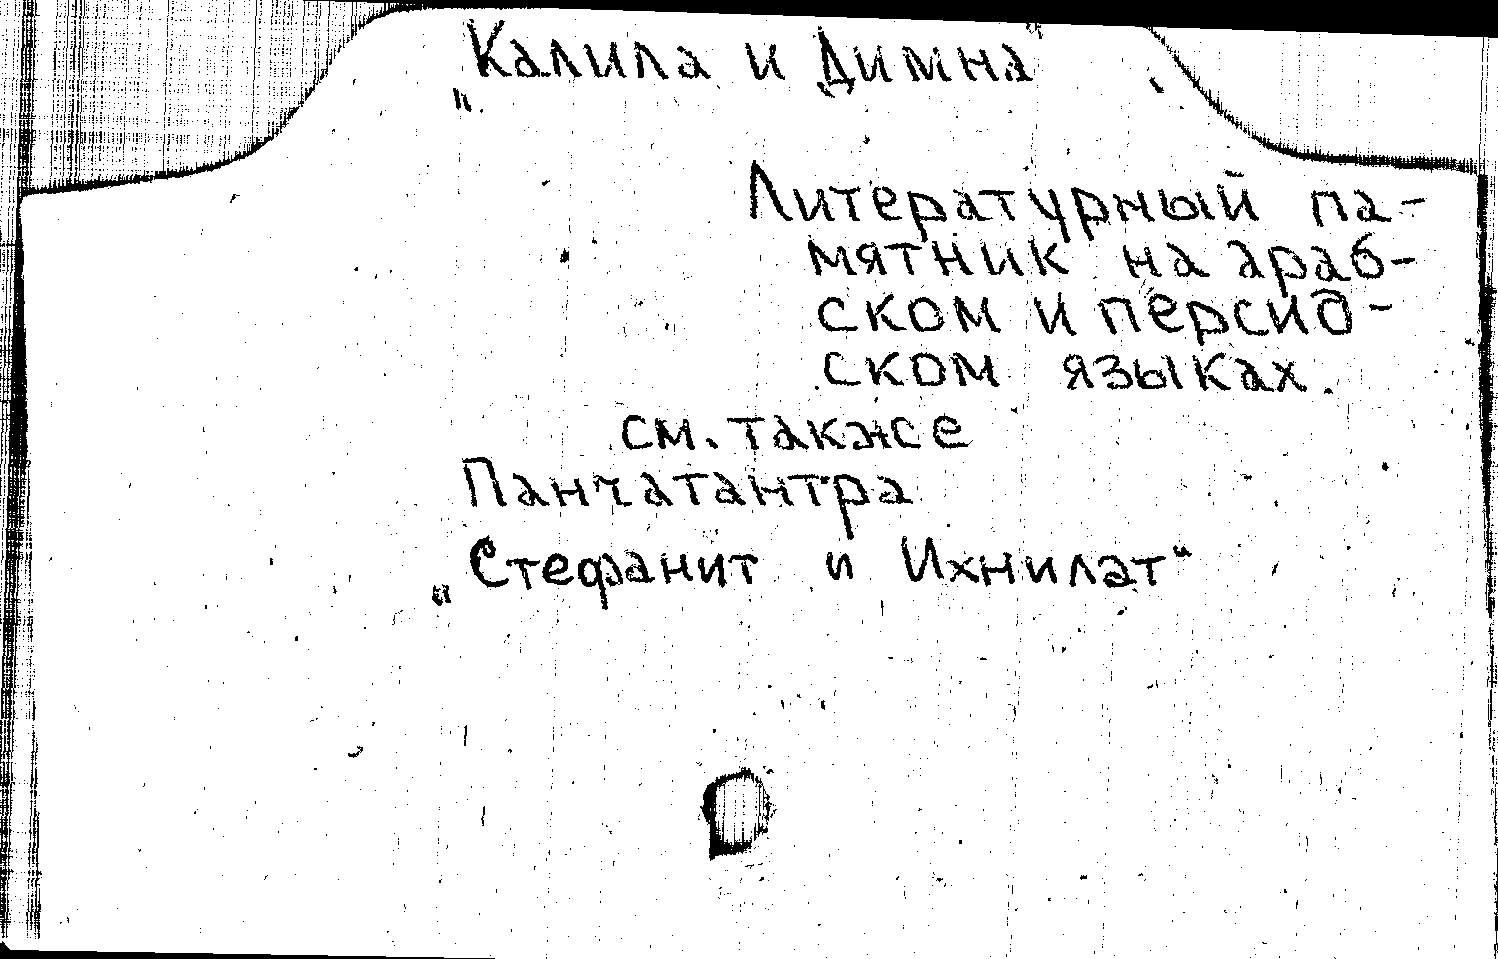 „Калила и Димна"
Литературный па-
мятник на араб-
ском и персид-
ском языках.
см. также
Панчатантра
„Стефанит и Ихнилат"